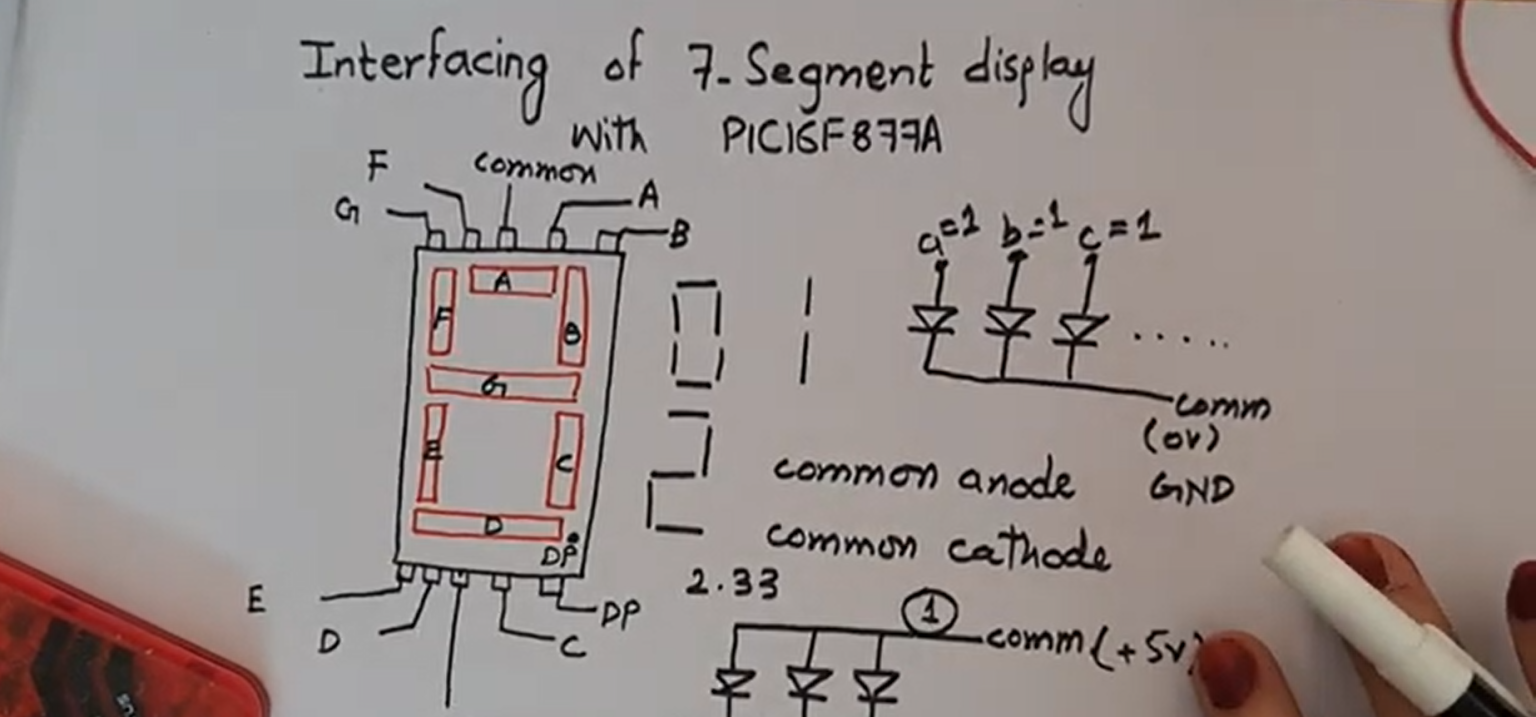 Interfacing of 7-Segment display
with PIC16F877A
F common A
G B
a=1 b=1 c=1
A
F B
G
E C
D
DP
.....
comm
(0V)
GND
common anode
common cathode
2.33
E DP
D C
1 comm (+5V)